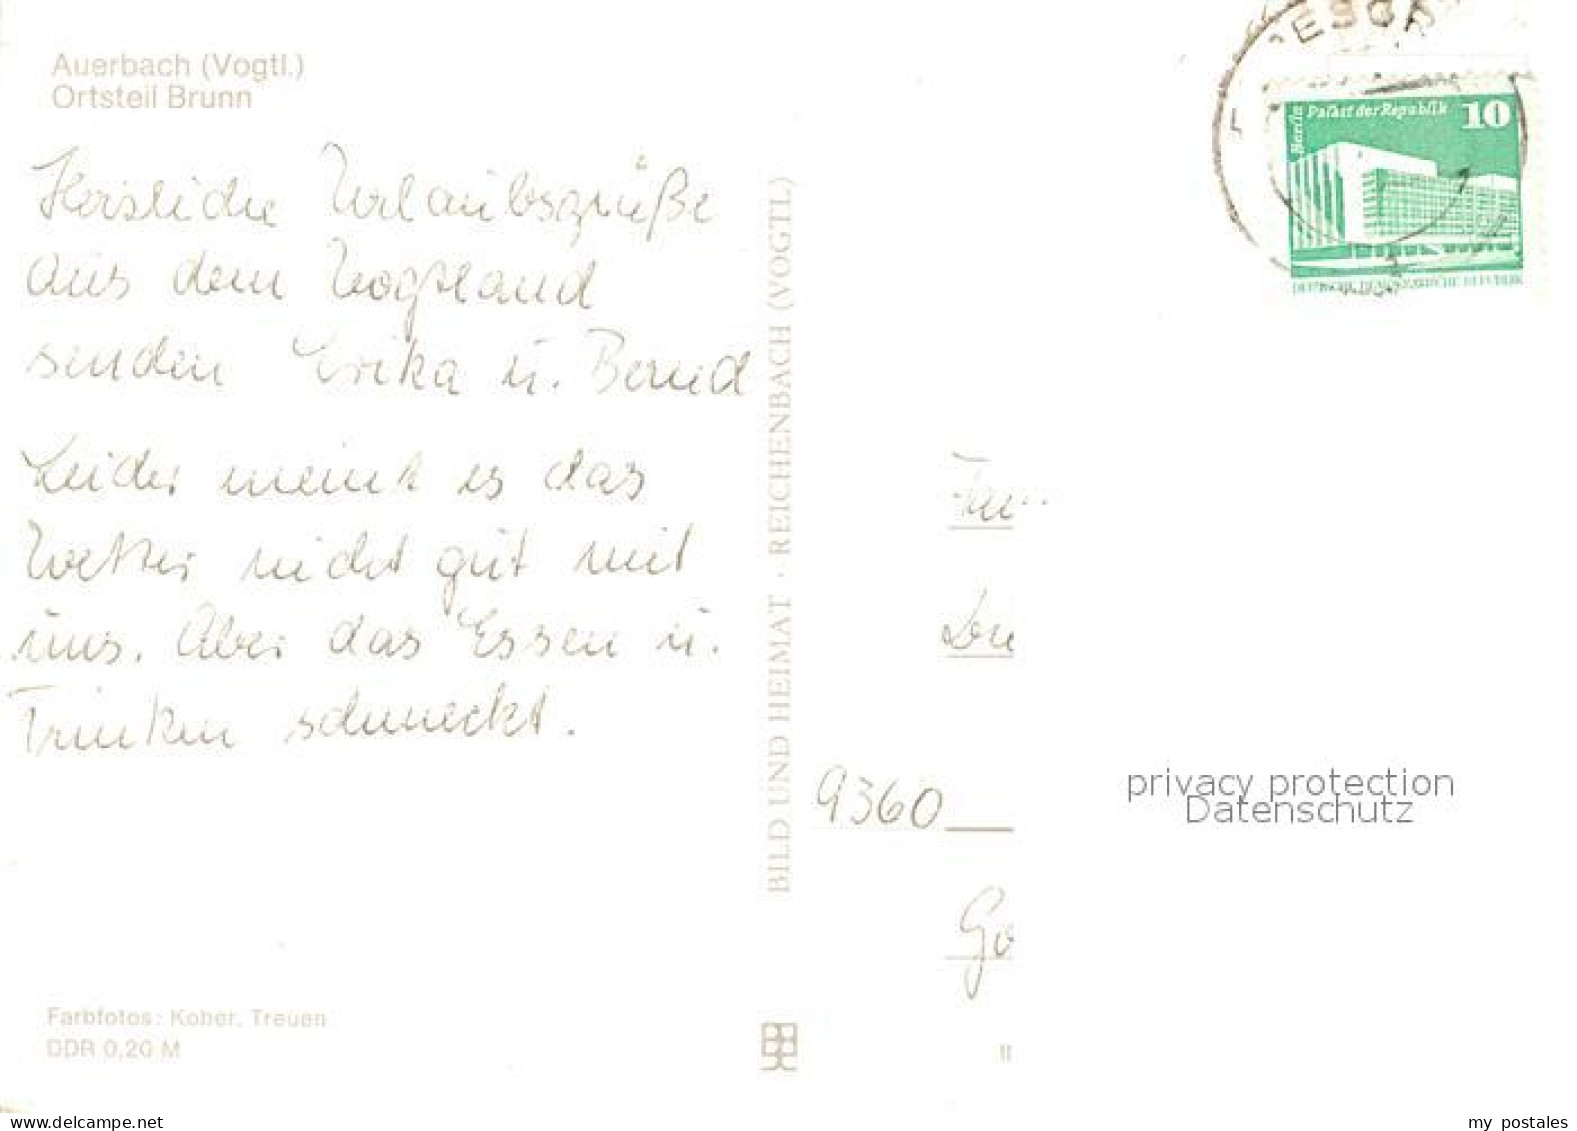 Auerbach (Vogtl.)
Ortsteil Brunn
Herzliche Urlaubsgrüße
aus dem Vogtland
senden Erika u. Bernd
Leider meint es das
Wetter nicht gut mit
uns. Aber das Essen u.
Trinken schmeckt.
Farbfotos: Kober, Treuen
DDR 0,20 M
BILD UND HEIMAT · REICHENBACH (VOGTL.)
Berlin Palast der Republik 10
DEUTSCHE DEMOKRATISCHE REPUBLIK
9360
privacy protection
Datenschutz
www.delcampe.net
my_postales